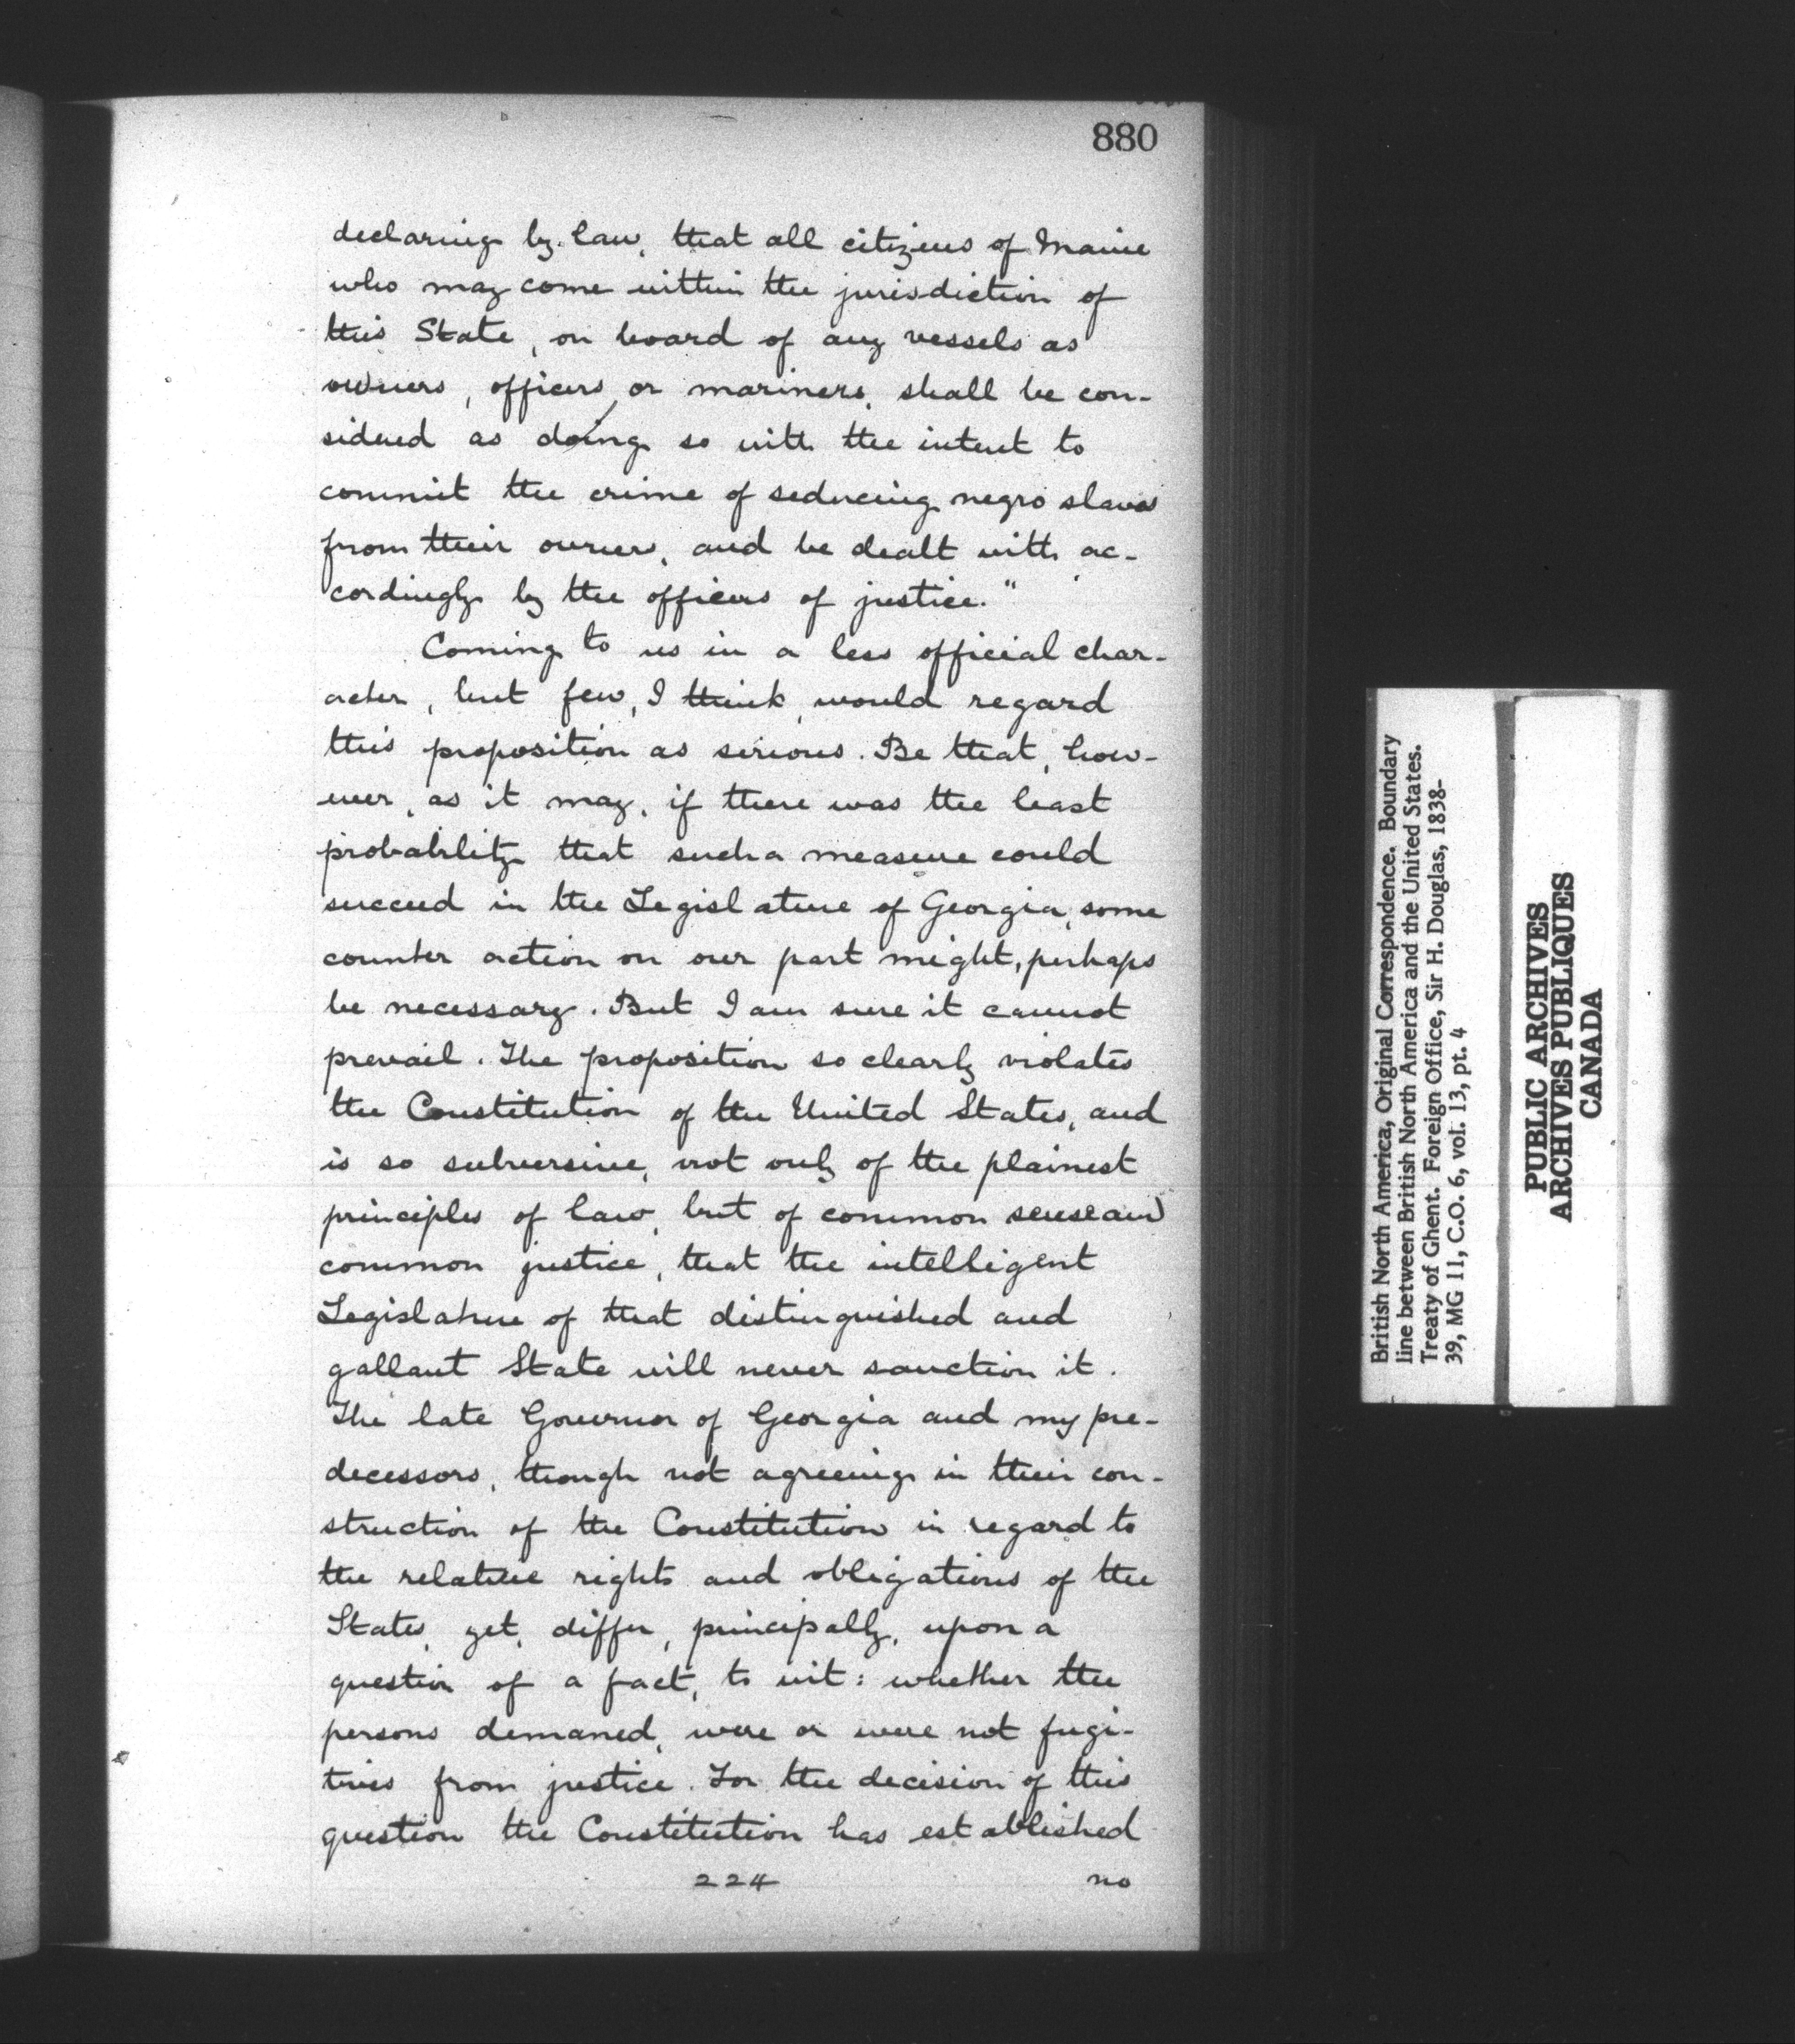 880
declaring by law, that all citizens of Maine
who may come within the jurisdiction of
this State, on board of any vessels as
owners, officers, or mariners, shall be con-
sidered as doing so with the intent to
commit the crime of seducing negro slaves
from their owners, and be dealt with ac-
cordingly by the officers of justice."
Coming to us in a less official char-
acter, but few, I think, would regard
this proposition as serious. Be that, how-
ever, as it may, if there was the least
probability that such a measure could
succeed in the Legislature of Georgia, some
counter action on our part might, perhaps
be necessary. But I am sure it cannot
prevail. The proposition so clearly violates
the Constitution of the United States, and
is so subversive, not only of the plainest
principles of law, but of common sense and
common justice, that the intelligent
Legislature of that distinguished and
gallant State will never sanction it.
The late Governor of Georgia and my pre-
decessors, though not agreeing in their con-
struction of the Constitution in regard to
the relative rights and obligations of the
States, yet, differ, principally, upon a
question of a fact, to wit: whether the
persons demaned, were or were not fugi-
tives from justice. For the decision of this
question the Constitution has established
224 no
British North America, Original Correspondence. Boundary
line between British North America and the United States.
Treaty of Ghent. Foreign Office, Sir H. Douglas, 1838-
39, MG 11, C.O. 6, vol. 13, pt. 4
PUBLIC ARCHIVES
ARCHIVES PUBLIQUES
CANADA